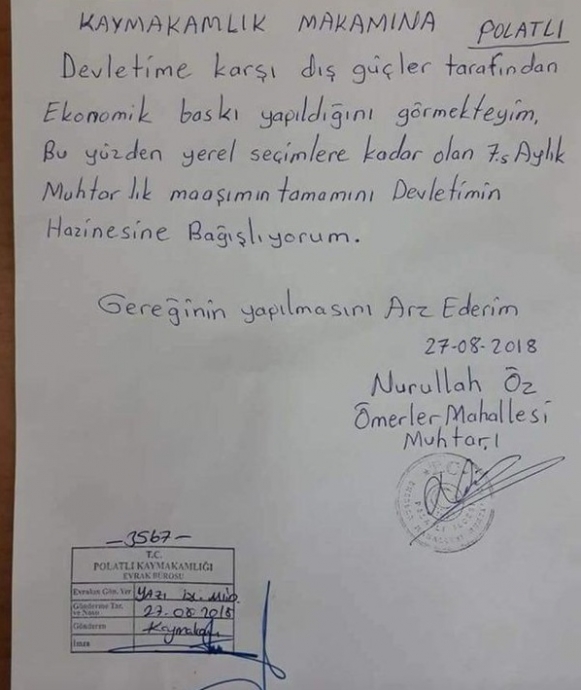 KAYMAKAMLIK MAKAMINA POLATLI
Devletime karşı dış güçler tarafından
Ekonomik baskı yapıldığını görmekteyim,
Bu yüzden yerel seçimlere kadar olan 7.5 Aylık
Muhtarlık maaşımın tamamını Devletimin
Hazinesine Bağışlıyorum.
Gereğinin yapılmasını Arz Ederim
27-08-2018
Nurullah Öz
Ömerler Mahallesi
Muhtarı
T.C.
-3567-
T.C.
POLATLI KAYMAKAMLIĞI
EVRAK BÜROSU
Evrakın Gön. Yer YAZI İş. Müd.
Gönderme Tar. ve Notu 27.08.2018
Gönderen Kaymakam
İmza